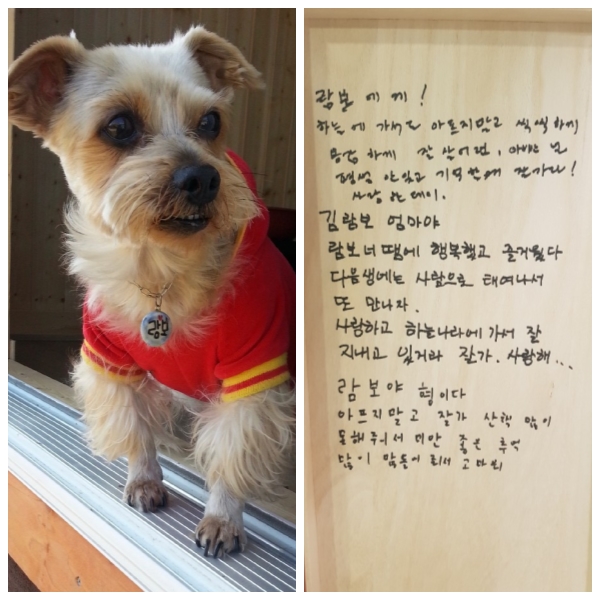 람보
람보 에게!
하늘에 가서도 아프지말고 씩씩하게
하게 잘 살아련, 아빠는 널
평생 안잊고 기억할께 잘가라!
사랑한데이.
김람보 엄마야
람보너땜에 행복했고 즐거웠다
다음생에는 사람으로 태여나서
또 만나자.
사랑하고 하늘나라에가서 잘
지내고 있거라 잘가. 사랑해...
람보야 형이다
아프지말고 잘가 산책 많이
못해줘서 미안 좋은 추억
많이 만들어줘서 고마워